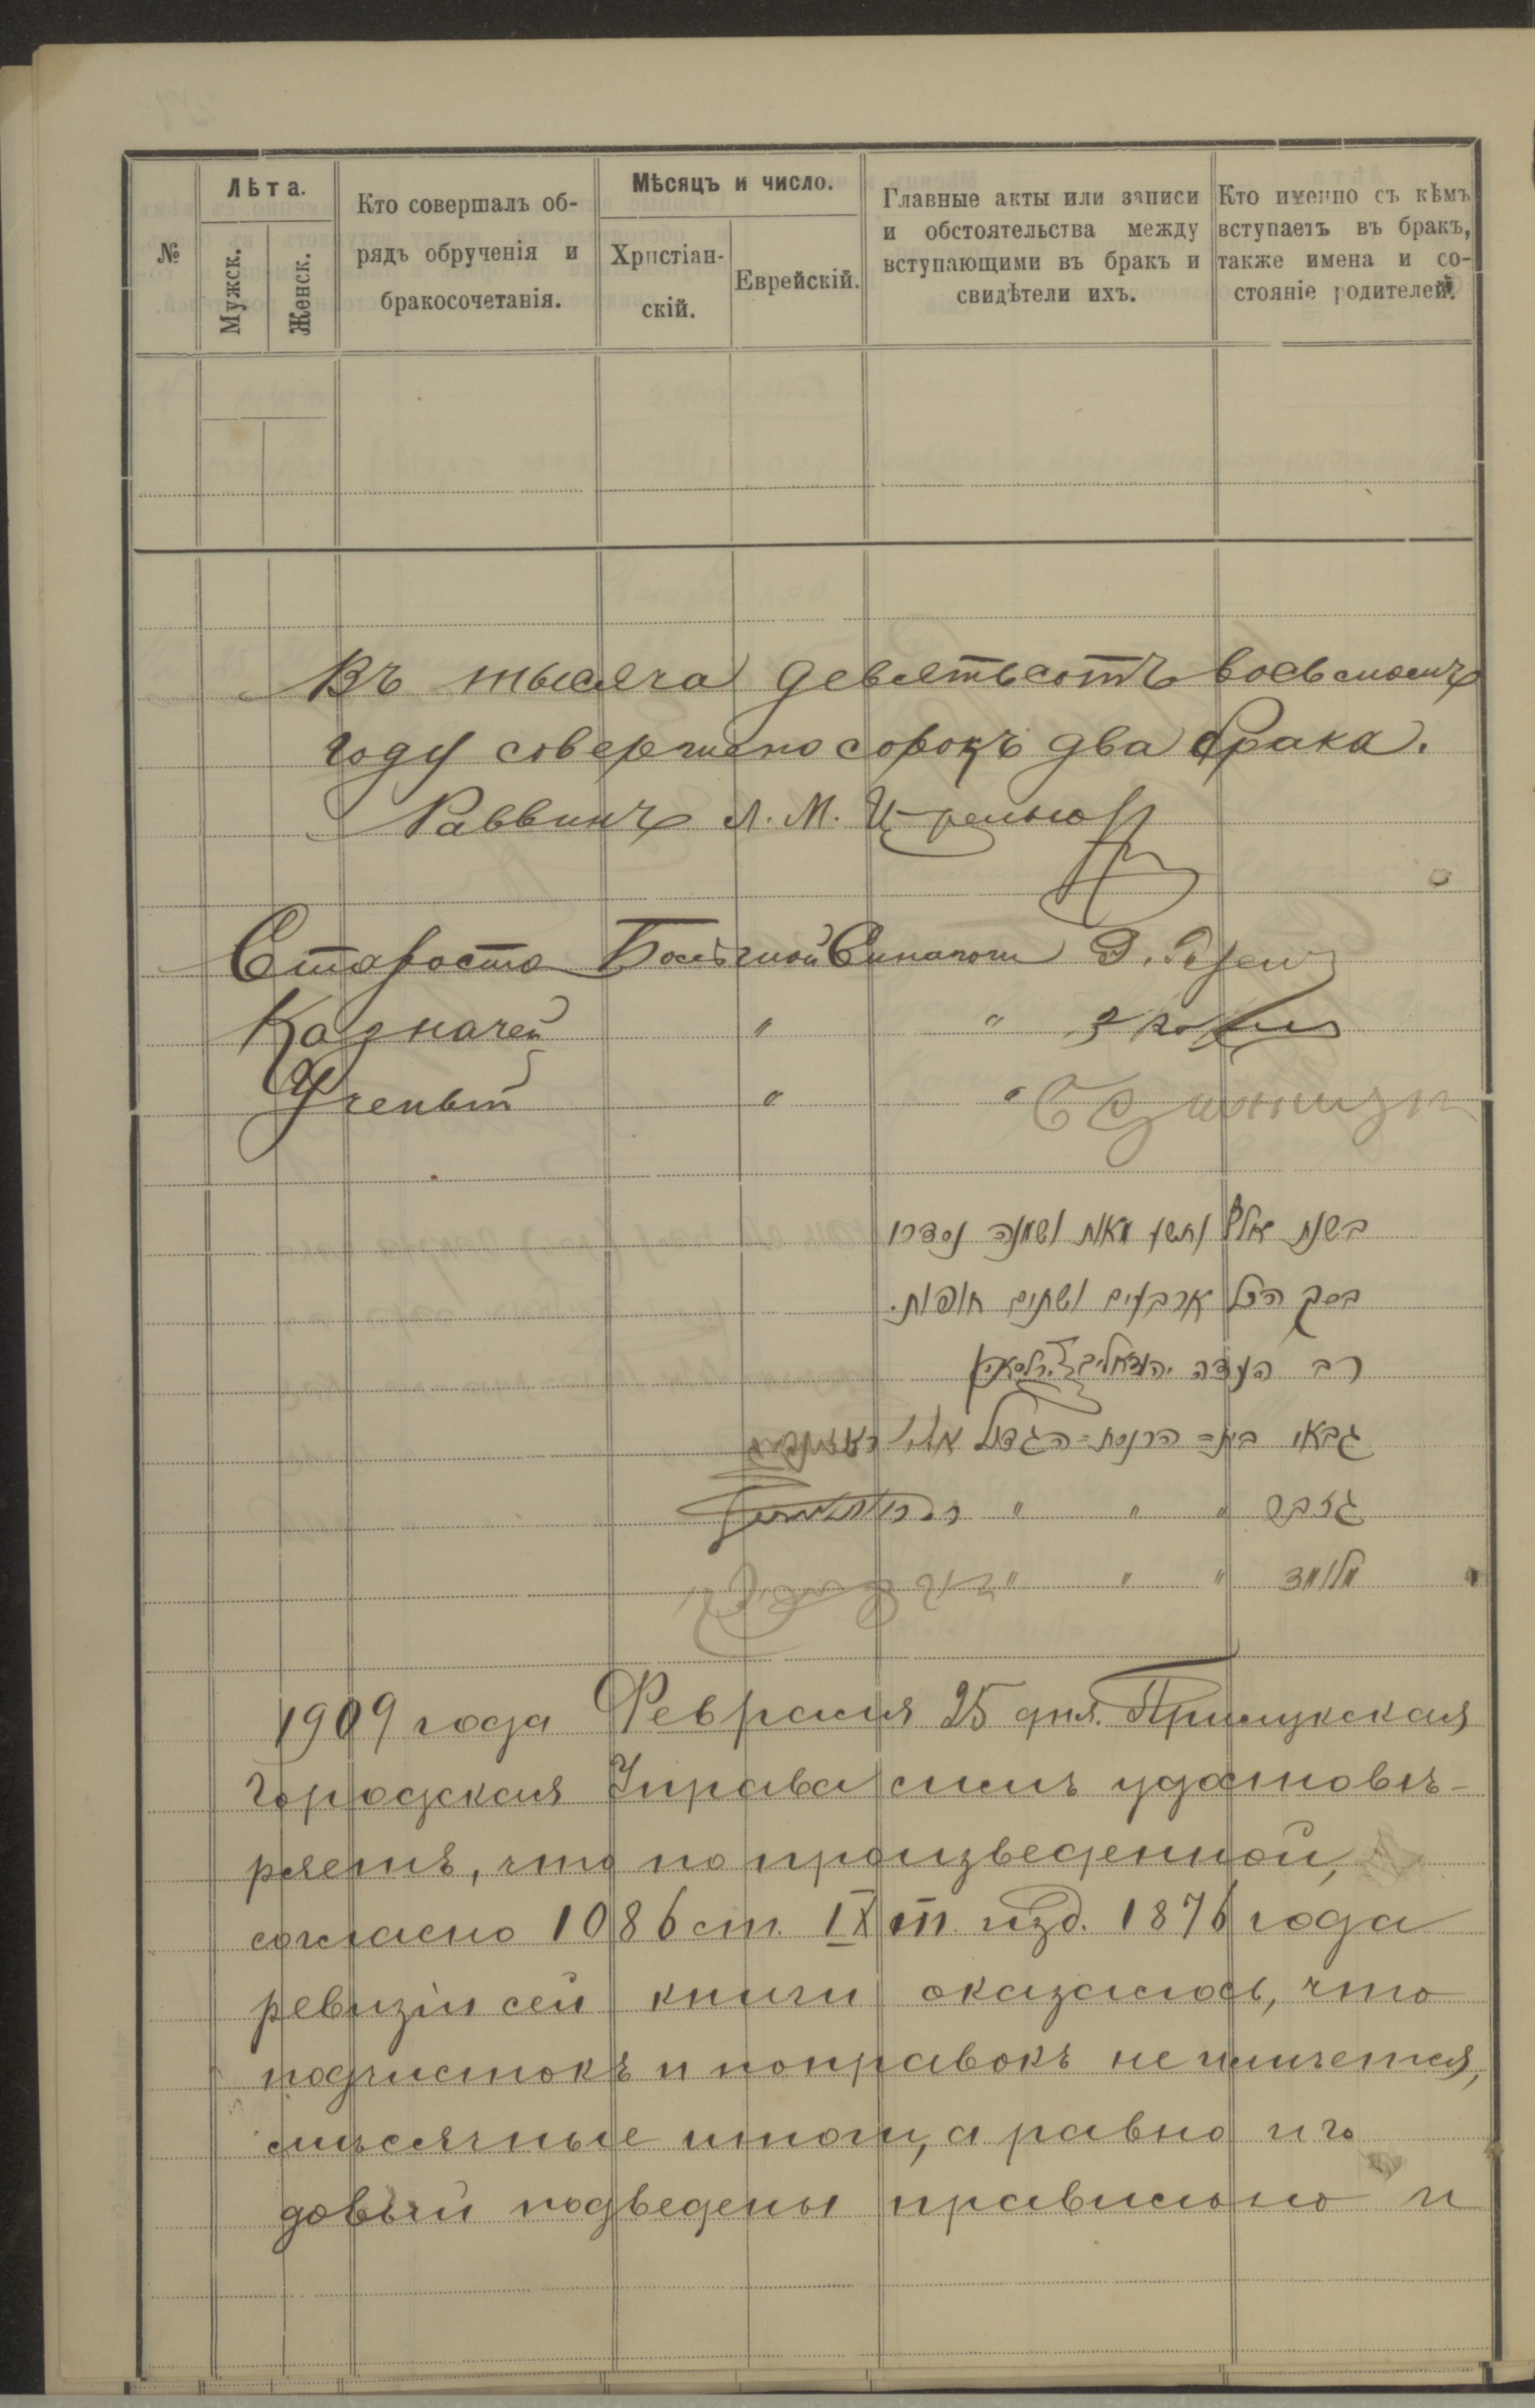 №
Лѣта.
Мужск.
Женск.
Кто совершалъ об-
рядъ обрученія и
бракосочетанія.
Мѣсяцъ и число.
Христіан-
скій.
Еврейскій.
Главные акты или записи
и обстоятельства между
вступающими въ бракъ и
свидѣтели ихъ.
Кто именно съ кѣмъ
вступаетъ въ бракъ,
также имена и со-
стояніе родителей.
Въ тысяча девятьсотъ восьмомъ
году совершено сорокъ два брака.
Раввинъ Л. М.
Староста Большой Синагоги
Казначей " "
Ученый " "
בשנת אלף ותשע מאות ושמונה נסדרו
בסך הכל ארבעים ושתים חופות.
רב העדה
גבאי בית= הכנסת= הגדול
גזבר " " "
מלומד " " "
1909 года Февраля 25 дня. Прилукская
Городская Управа симъ удостовѣ-
ряетъ, что по произведенной,
согласно 1086 ст. IX т. изд. 1876 года
ревизіи сей книги оказалось, что
подчистокъ и поправокъ не имѣется,
мѣсячные итоги, а равно и го
довый подведены правильно и